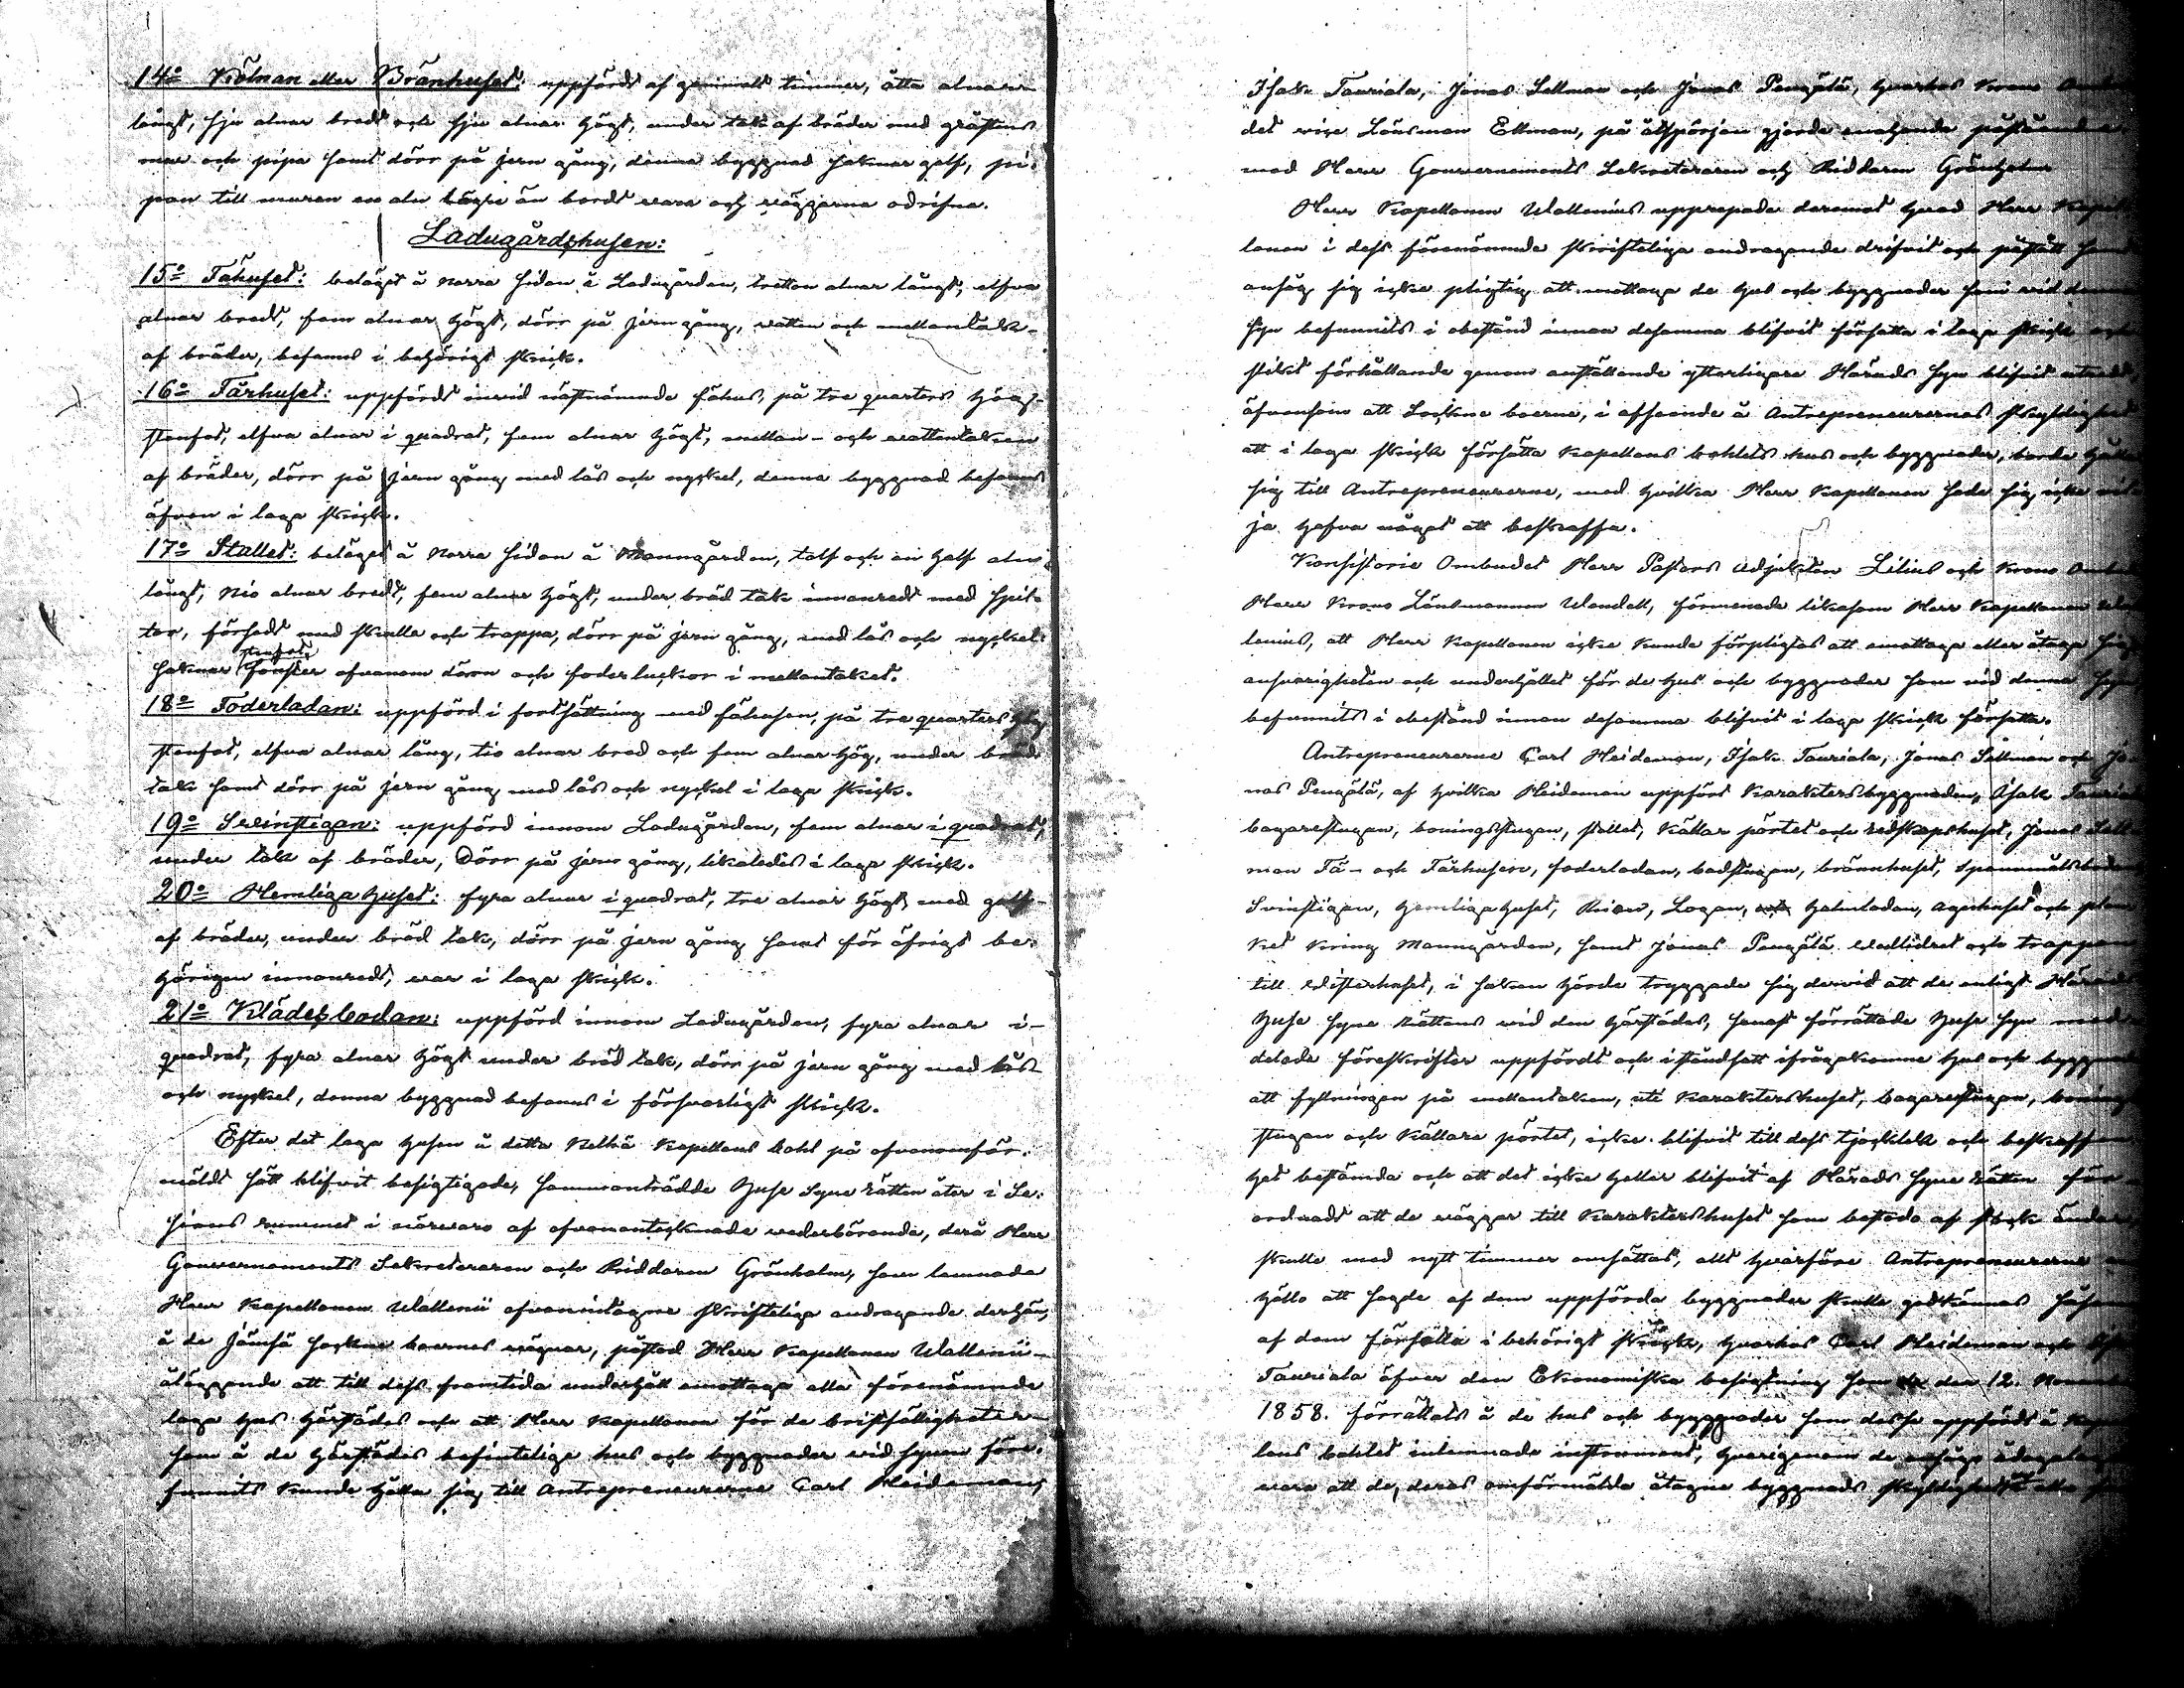 14º Kölnan eller Bränhuset: uppfördt af gammalt timmer, åtta alnar
långt, sju alnar bredt och sju alnar högt, under tak af bräder med gråstens
mur och pipa samt dörr på jern gång, denna byggnad saknar golf, pi-
pan till muren en aln lägre än bordt vara och väggarna odrifna.
Ladugårdshusen:
15º Fähuset: beläget å Norra sidan å Ladugården, tretton alnar långt, elfva
alnar bredt, fem alnar högt, dörr på jern gång, vatten och mellantak
af bräder, befanns i behörigt skick.
16º Fårhuset: uppfördt invid nästnämnde fähus, på tre quarters hög
stenfot, elfva alnar i quadrat, fem alnar högt, mellan- och vattentaken
af bräder, dörr på jern gång med lås och nyckel, denna byggnad befanns
äfven i laga skick.
17º Stallet: beläget å Norra sidan å Manngården, tolf och en half aln
långt, nio alnar bredt, fem alnar högt, under bräd tak innanredt med spil-
tor, försedt med skulle och trappa, dörr på jern gång, med lås och nyckel:
saknar stenfot, fönster ofvanom dörrn och foderluckor i mellantaket.
18º Foderladan: uppförd i fortsättning med fähusen, på tre quarters hög
stenfot, elfva alnar lång, tio alnar bred och fem alnar hög, under bräd
tak samt dörr på jern gång med lås och nyckel i laga skick.
19º Svinstigan: uppförd innom Ladugården, fem alnar i quadrat,
under tak af bräder, Dörr på jern gång, likaledes i laga skick.
20º Hemliga huset: fyra alnar i quadrat, tre alnar högt med golf
af bräder, under bräd tak, dörr på jern gång samt för öfrigt be-
hörigen innanredt, var i laga skick.
21º Klädesbodan: uppförd innom Ladugården, fyra alnar i
quadrat, fyra alnar högt under bräd tak, dörr på jern gång med lås
och nyckel, denna byggnad befanns i försvarligt skick.
Efter det laga husen å detta Kelhä Kapellans bohl på ofvanomför-
mäldt sätt blifvit besigtigade, sammanträdde Husesyne rätten åter i Se-
sions rummet i närvaro af ofvanantecknade vederbörande, derå Herr
Gouvernements Sekreteraren och Riddaren Grönholm, som lemnade
Herr Kapellanen Wallenii ofvanintagne skrifteliga andragande derhän,
å de Jämsä sockne boernes vägnar, påstod Herr Kapellanen Wallenii
åläggande att till dess framtida underhåll emottaga alla förenämnde
laga hus härstädes och att Herr Kapellanen för de bristfälligheter
som å de härstädes befinteliga hus och byggnader vid synen före-
funnits kunde hålla sig till Antrepreneurerne Carl Heideman,
Isak Tauriala, Jonas Sellman och Jonas Pengälä, hvarhos Krono
det vice Länsman Ekman, på åtspörjan gjorde enahanda påstående
med Herr Gouvernements Sekreteraren och Riddaren Grönholm
Herr Kapellanen Wallenius upprepade deremot hvad Herr Kapel-
lanen i dess förenämnde skrifteliga andragande drifvit och påstått samt
ansåg sig icke pligtig att mottaga de hus och byggnader som vid denna
syn befunnits i obestånd innan desamma blifvit försatta i laga skick och
slikt förhållande genom anställande ytterligare Härads syn blifvit utredt,
äfvensom att Sockne boerne, i afseende å Antrepreneurernes skyldighet
att i laga skick försätta Kapellans bohlets hus och byggnader, borde hålla
sig till Antrepreneurerne, med hvilka Herr Kapellanen sade sig icke vil-
ja hafva något att beskaffa.
Konsistorie Ombudet Herr Pastors Adjukten Lilius och Krono Ombud
Herr Krono Länsmannen Wendell, förmenade likasom Herr Kapellanen Wal-
lenius, att Herr Kapellanen icke kunde förpligtas att emottaga eller åtaga sig
ansvarigheten och underhållet för de hus och byggnader som vid denna syn
befunnits i obestånd innan desamma blifvit i laga skick försatta.
Antrepreneurerne Carl Heideman, Isak Tauriala, Jonas Sellman och Jo-
nas Pengälä, af hvilka Heideman uppfört Karaktersbyggnaden, Isak Tauriala
bagarestugan, boningsstugan, stallet, Källar pörtet och redskapshuset, Jonas Sell-
man Fä- och Fårhusen, foderladan, badstugan, brännhuset, Spannmålsbodan
Svinstigan, hemliga huset, Rian, Logan, halmladan, agnhuset och plan-
ket kring Manngården, samt Jonas Pengälä vedlidret och trappan
till Visterhuset, i saken hörde tryggade sig dervid att de enligt Härads
Huse syne Rättens vid den härstädes, senast förrättade Huse syn med-
delade föreskrifter uppfördt och iståndsatt ifrågakomne hus och byggnader
att fyllningen på mellantaken, uti Karaktershuset, bagarestugan, bonings
stugan och Källare pörtet, icke blifvit till dess tjocklek och beskaffen-
het bestämda och att det icke heller blifvit af Härads Syne Rätten för-
ordnadt att de väggar till Karaktershuset som bestodo af stock ändar,
skulle med nytt timmer omsättas, allt hvarföre Antrepreneurerne
höllo att sagde af dem uppförda byggnader skulle godkännas såsom
af dem försatta i behörigt skick, hvarhos Carl Heideman och Isak
Tauriala öfver den Ekonomiska besigtning som den 12. November
1858. förrättats å de hus och byggnader som desse uppfördt å Kapel-
lans bohlet inlemnade instrument, hvarigenom de ansågo
vara att de, deras omförmälda åtagne byggnads skyldighet